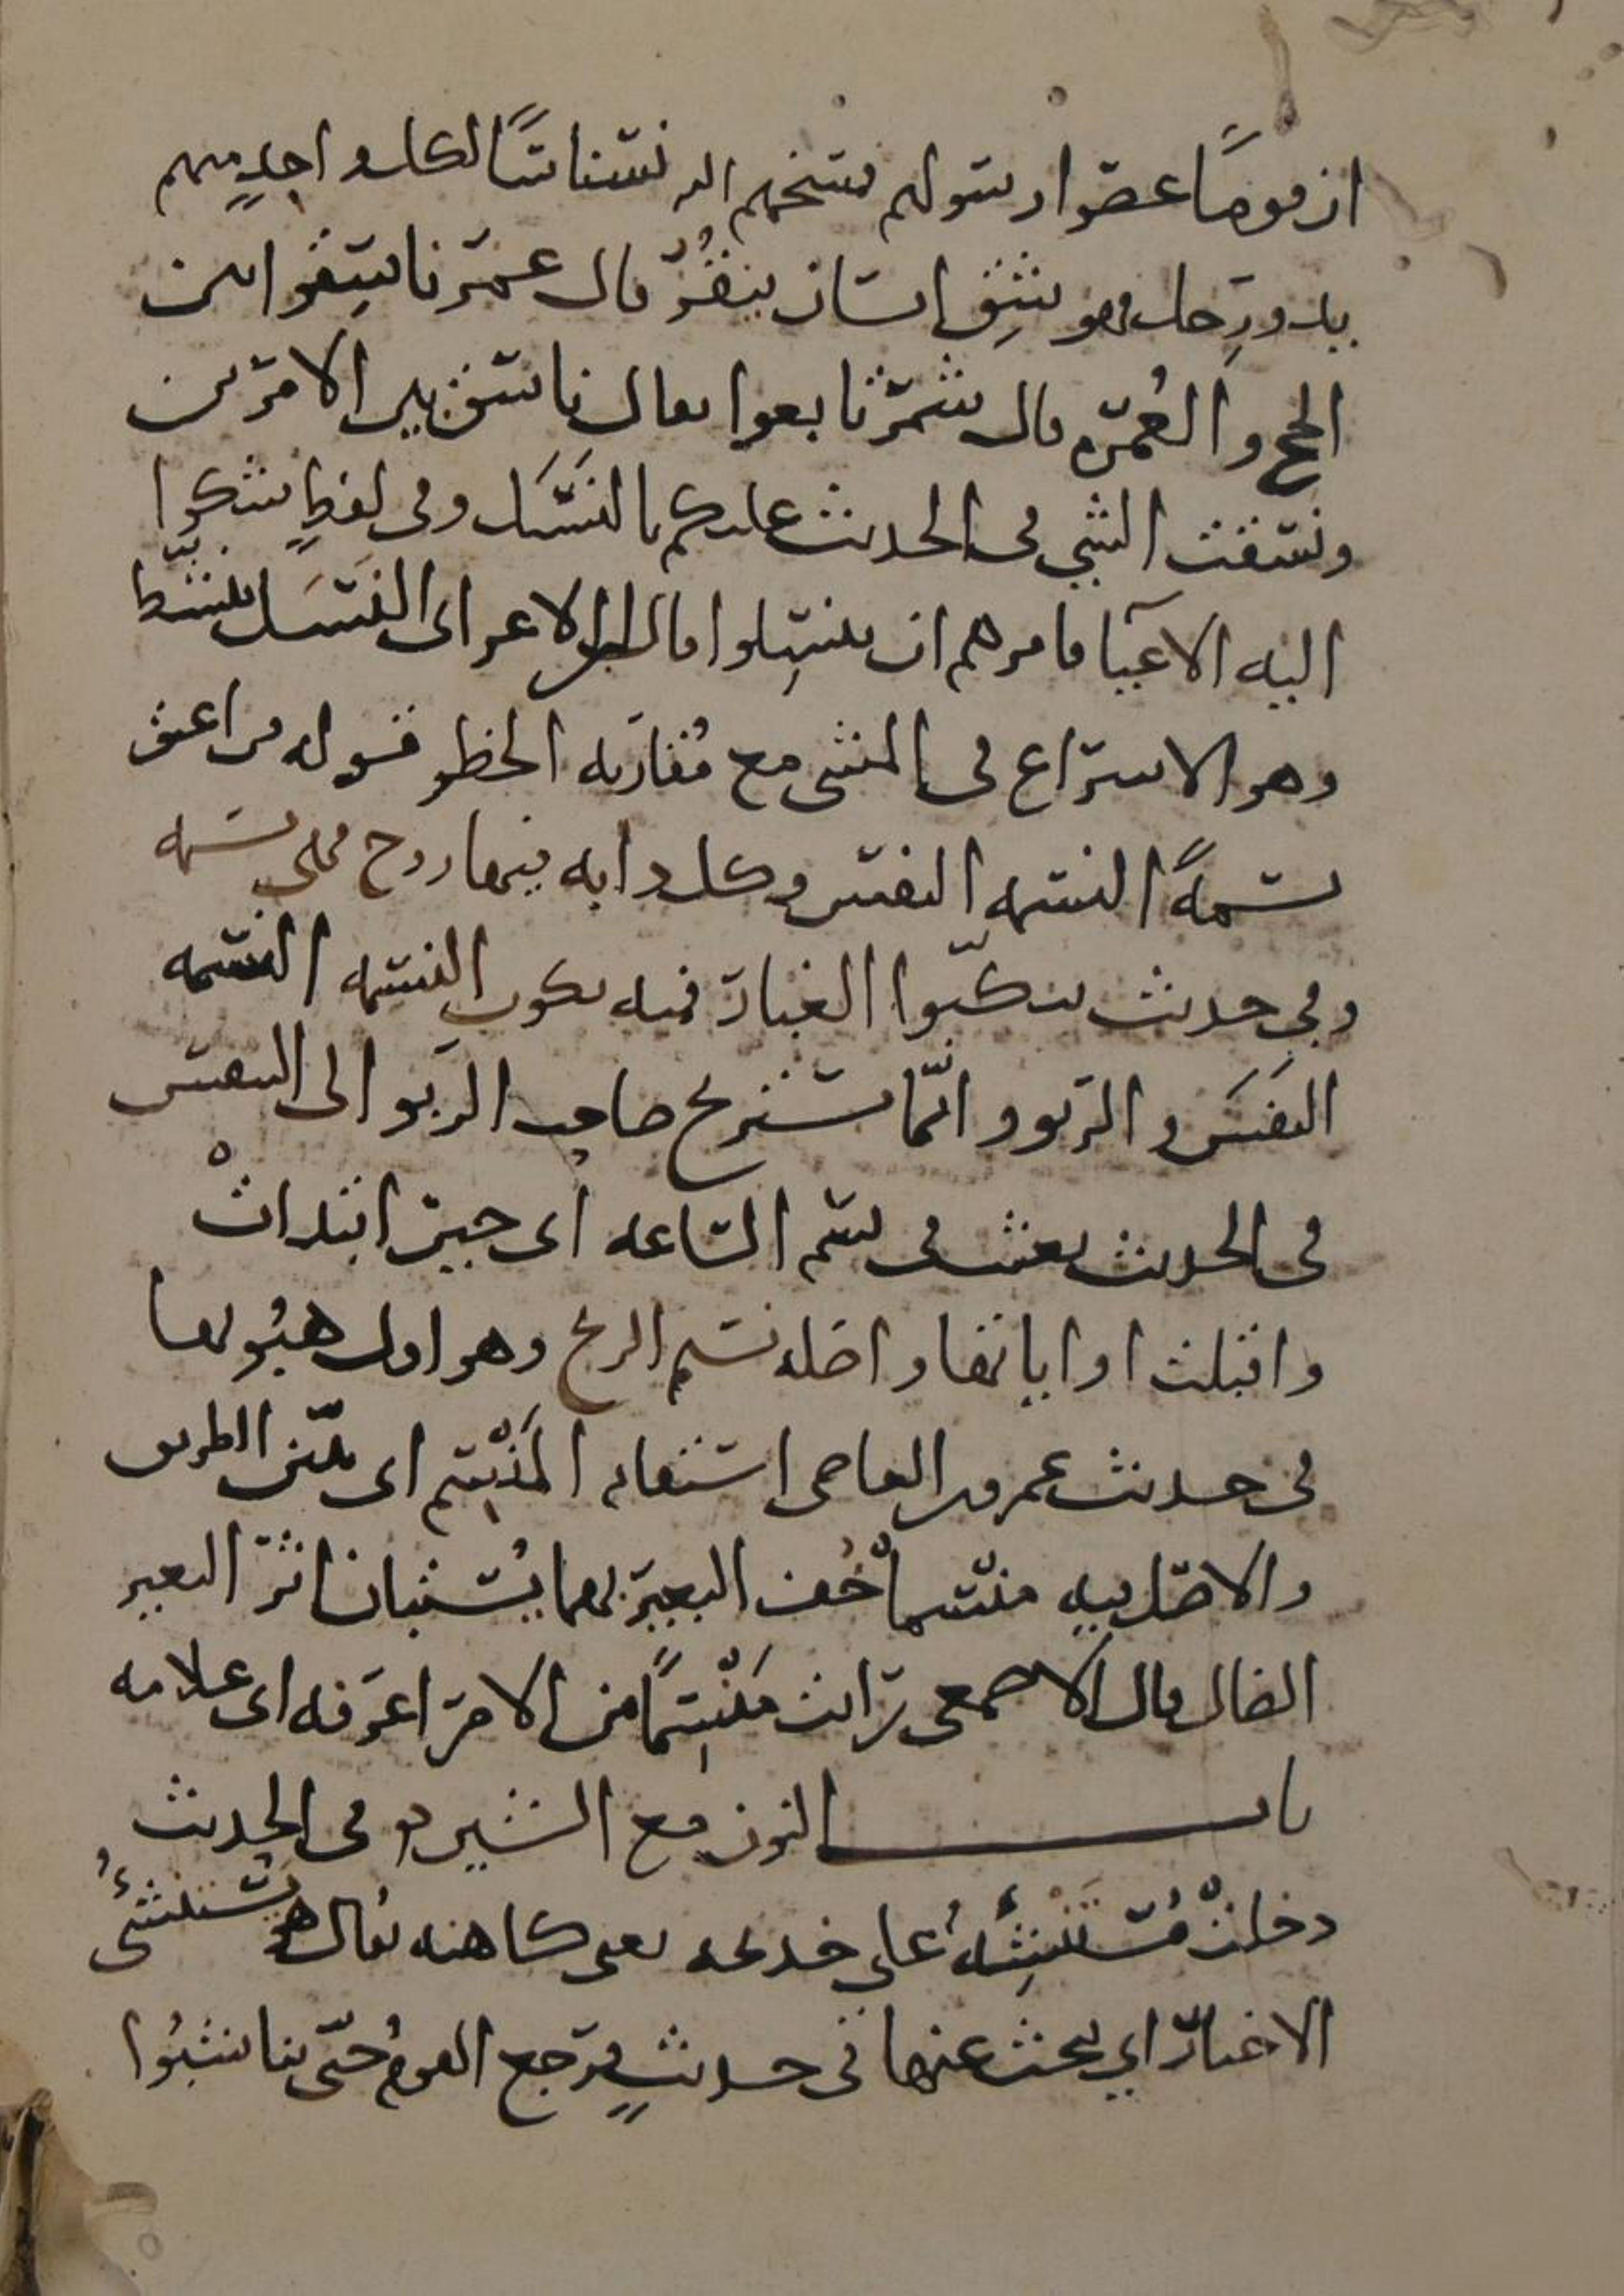 ان قومًا عصوا رسولهم فمسخهم الله نسناسًا لكل واحدٍ منهم
يد ورِجل فهو شِق انسان ينقُز قال عمر ناسِقوا بين
الحج والعُمره قال شمر تابعوا يقال ناسق بين الامرين
ونسقت الشي في الحديث عليكم بالنَسَل وفي لفظٍ شكوا
اليه الاعيآ فامرهم ان ينسِلوا قال ابن الاعرابي النَسَل ينشّط
وهو الاسراع في المشي مع مُقاربه الخطو قوله من اعتق
نسمةً النسمه النفس وكل دابه فيها روح فهي نسمه
وفي حديث تنكبّوا الغبار فمنه تكون النسمه النسمه
النفَسَ والربو وانّما يستريح صاحب الربو الى النفس
في الحديث بعثت في نسم الساعه اى حين ابتداتْ
واقبلت اوايانها واصله نسيم الريح وهو اول هبُوبها
في حديث عمرو بن العاص استقام المَنْسِم اى تبيّن الطريق
والاصل فيه منسما خُف البعير بهما يُستبان اثر البعير
الضال قال الاصمعي رايت مَنْسِمًا من الامر اعرفه اى علامه
باب النون مع الشين في الحديث
دخلتْ مُستَنشِئهُ على خديجه يعني كاهنه يقال هو يستنشئُ
الاخبار اي يبحث عنها في حديثٍ فرجع القومُ حتّى تناشبُوا